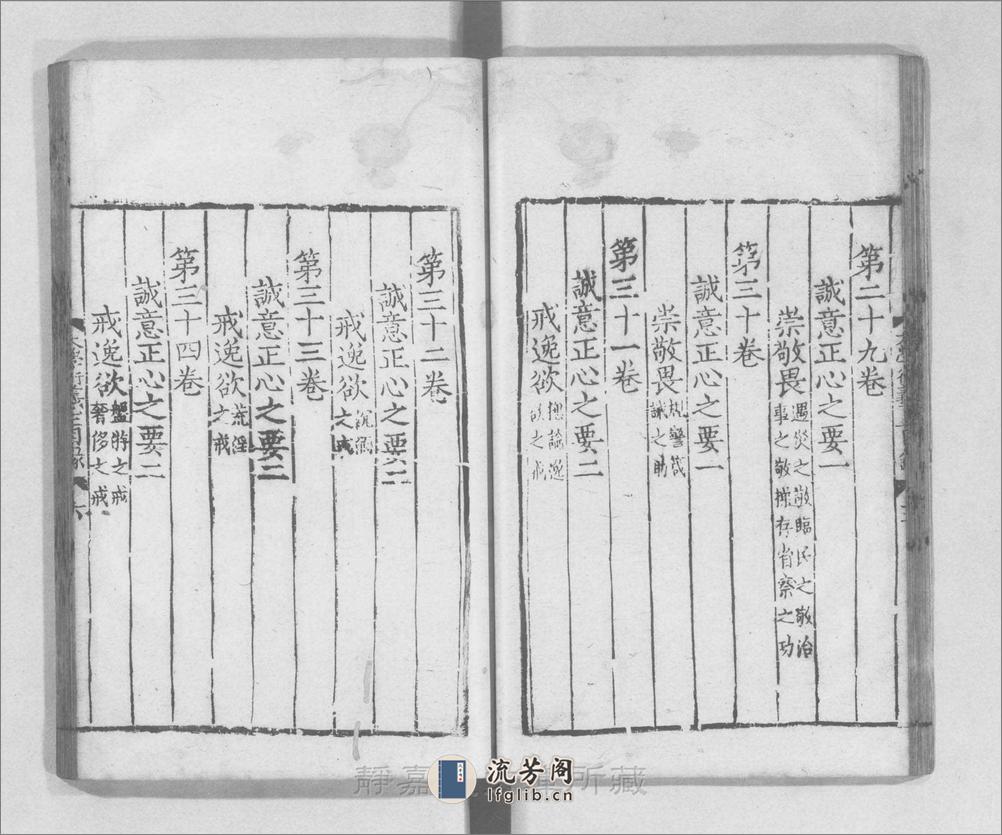 第二十九卷
誠意正心之要一
崇敬畏遇災之敬臨民之敬治事之敬操存省察之功
第三十卷
誠意正心之要一
崇敬畏規警箴誡之助
第三十一卷
誠意正心之要二
戒逸欲總論逸欲之戒
第三十二卷
誠意正心之要二
戒逸欲沉湎之戒
第三十三卷
誠意正心之要二
戒逸欲荒淫之戒
第三十四卷
誠意正心之要二
戒逸欲盤遊之戒奢侈之戒
六
靜嘉
所藏
流芳阁
lfglib.cn